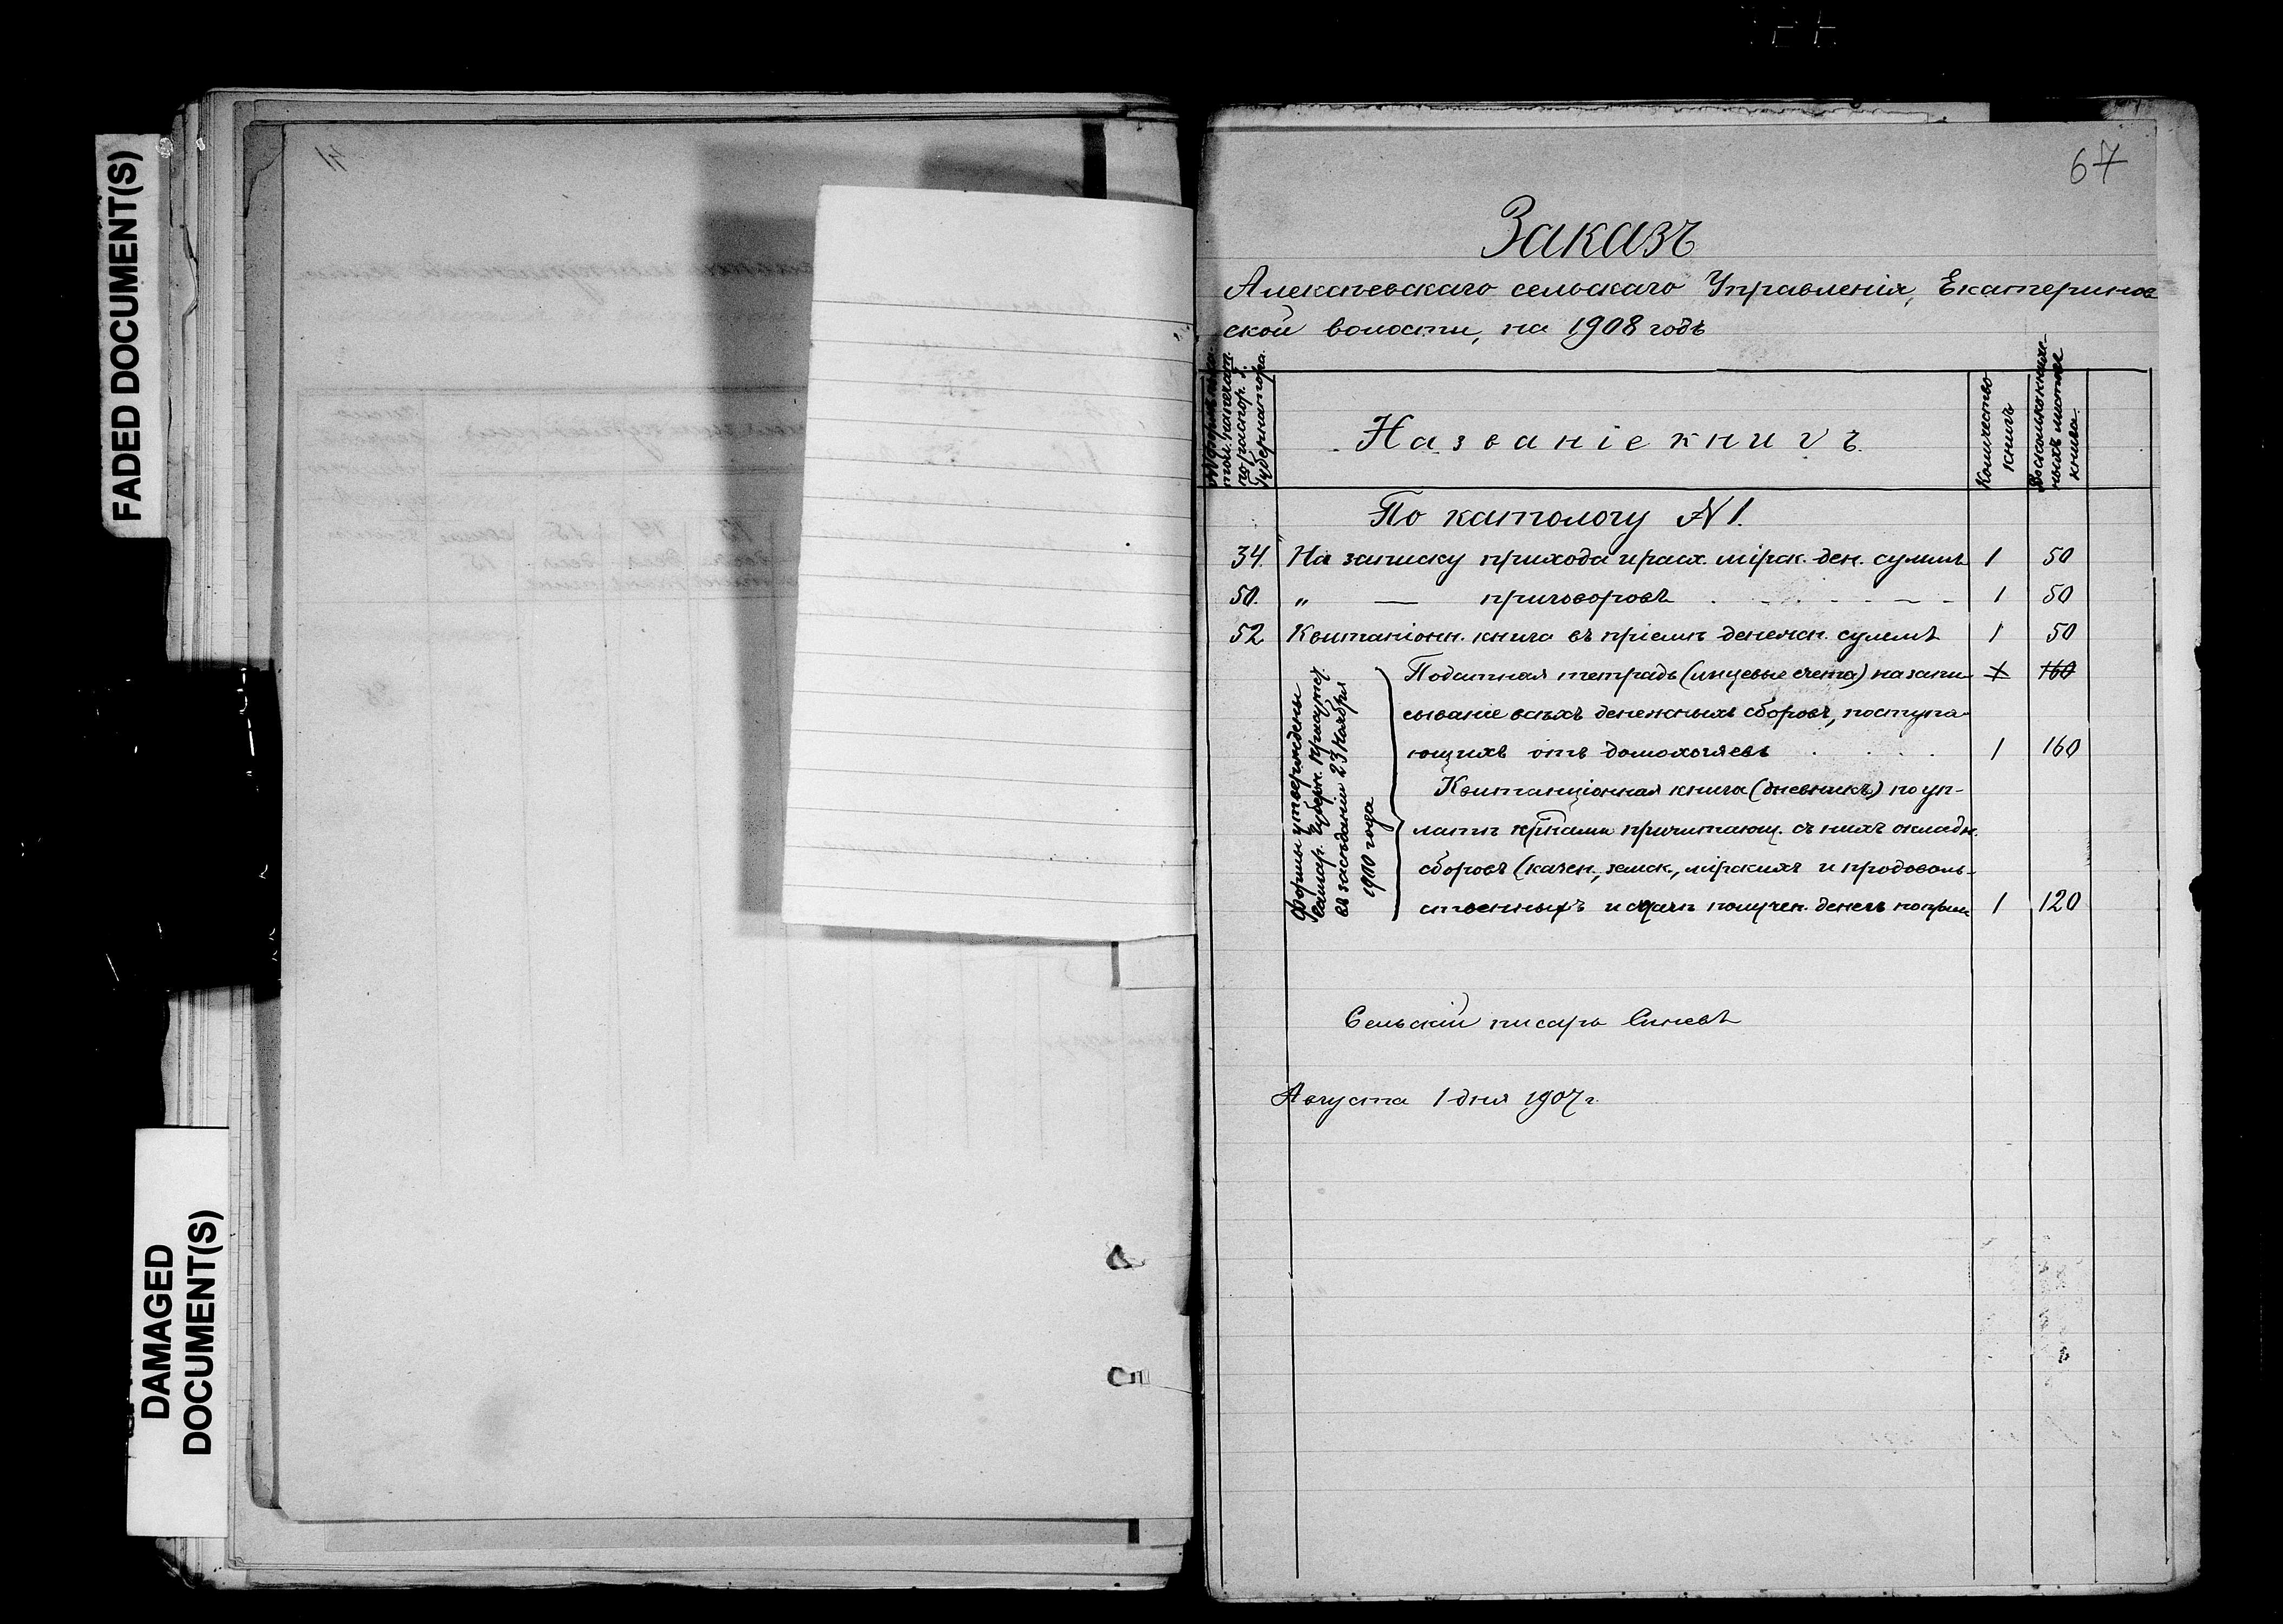 FADED DOCUMENT(S)
DAMAGED
DOCUMENT(S)
41
67
Заказъ
Алексѣевскаго сельскаго Управленія, Екатеринов
ской волости, на 1908 годъ
по распор. Г.
Губернатора.
Названіе книгъ
Количество
книгъ
Во сколько книж-
ныхъ листовъ
книга.
По катологу №1.
34. На записку прихода и расх. мірск. ден. суммъ 1 50
50. " — приговоровъ 1 50
52 Квитаніонн. книга въ пріемѣ денежн. суммъ 1 50
Формы утверждены
Самар. Губерн. Присутст.
въ засѣданіи 23 Ноября
1900 года
Податная тетрадь (лицевые счета) на запи- 1 160
сываніе всѣхъ денежныхъ сборовъ, поступа-
ющихъ отъ домохозяевъ 1 160
Квитанціонная книга (дневникъ) по уп-
латѣ кр-нами причитающ. съ нихъ окладн.
сборовъ (казен., земск., мірскихъ и продоволь-
ственныхъ и сдачѣ получен. денегъ 1 120
Сельскій писарь Синевъ
Августа 1 дня 1907 г.